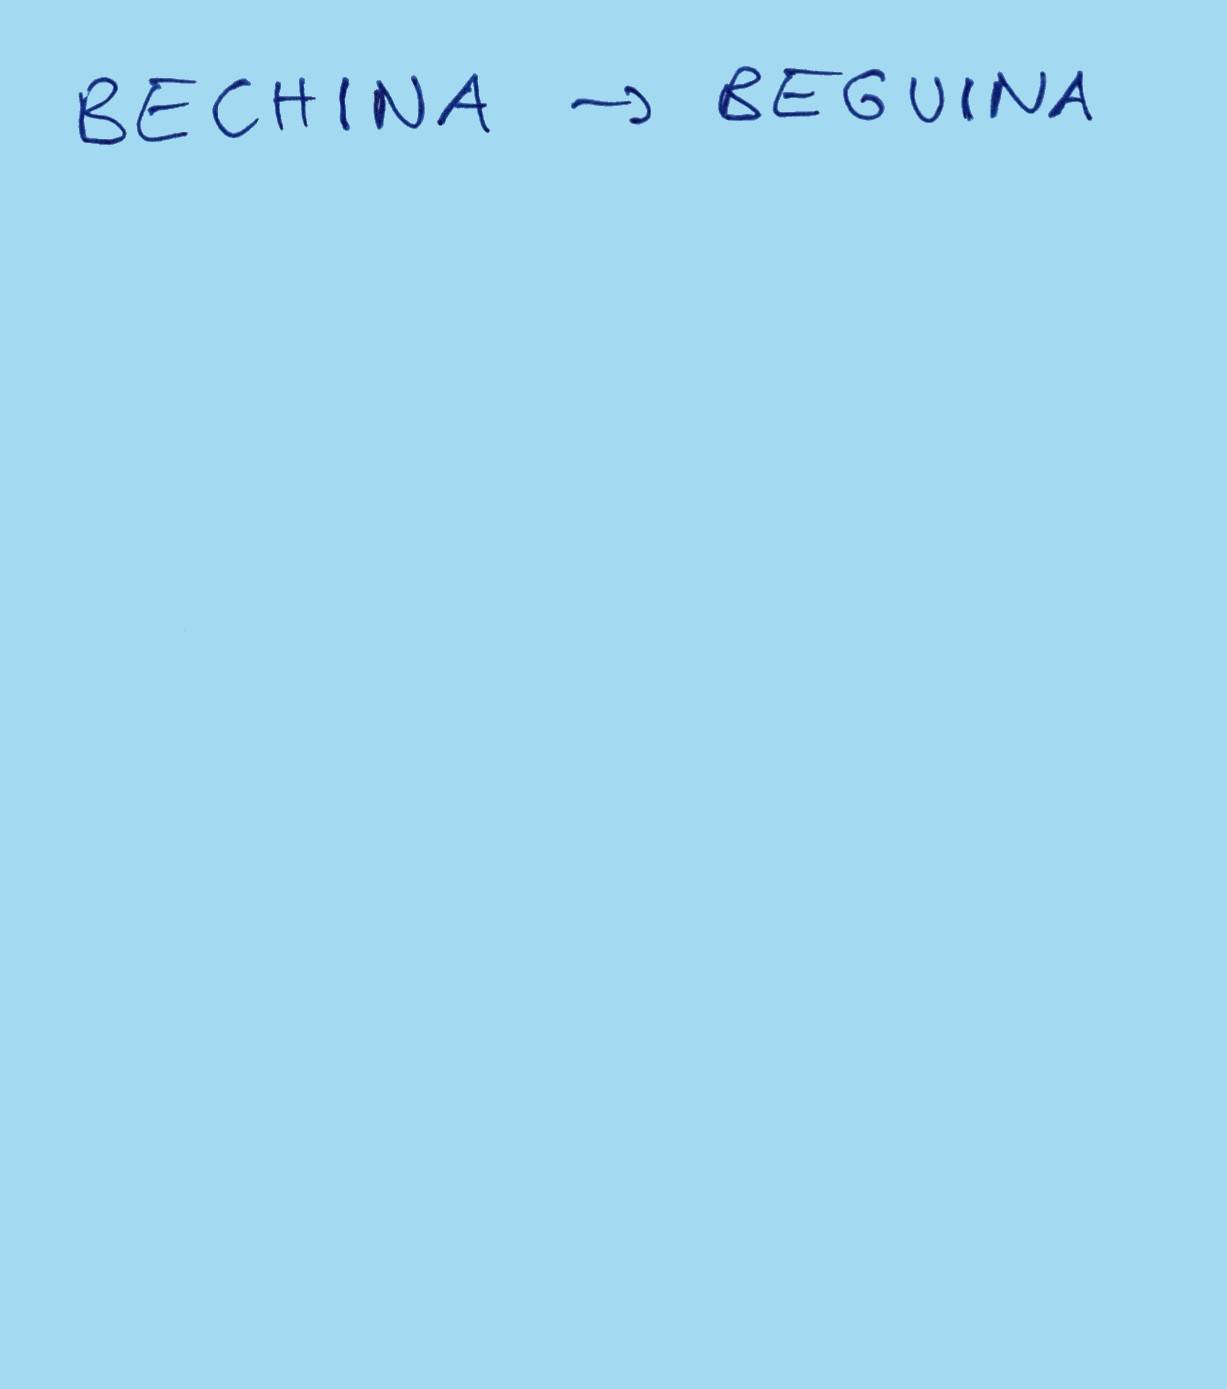 BECHINA → BEGUINA